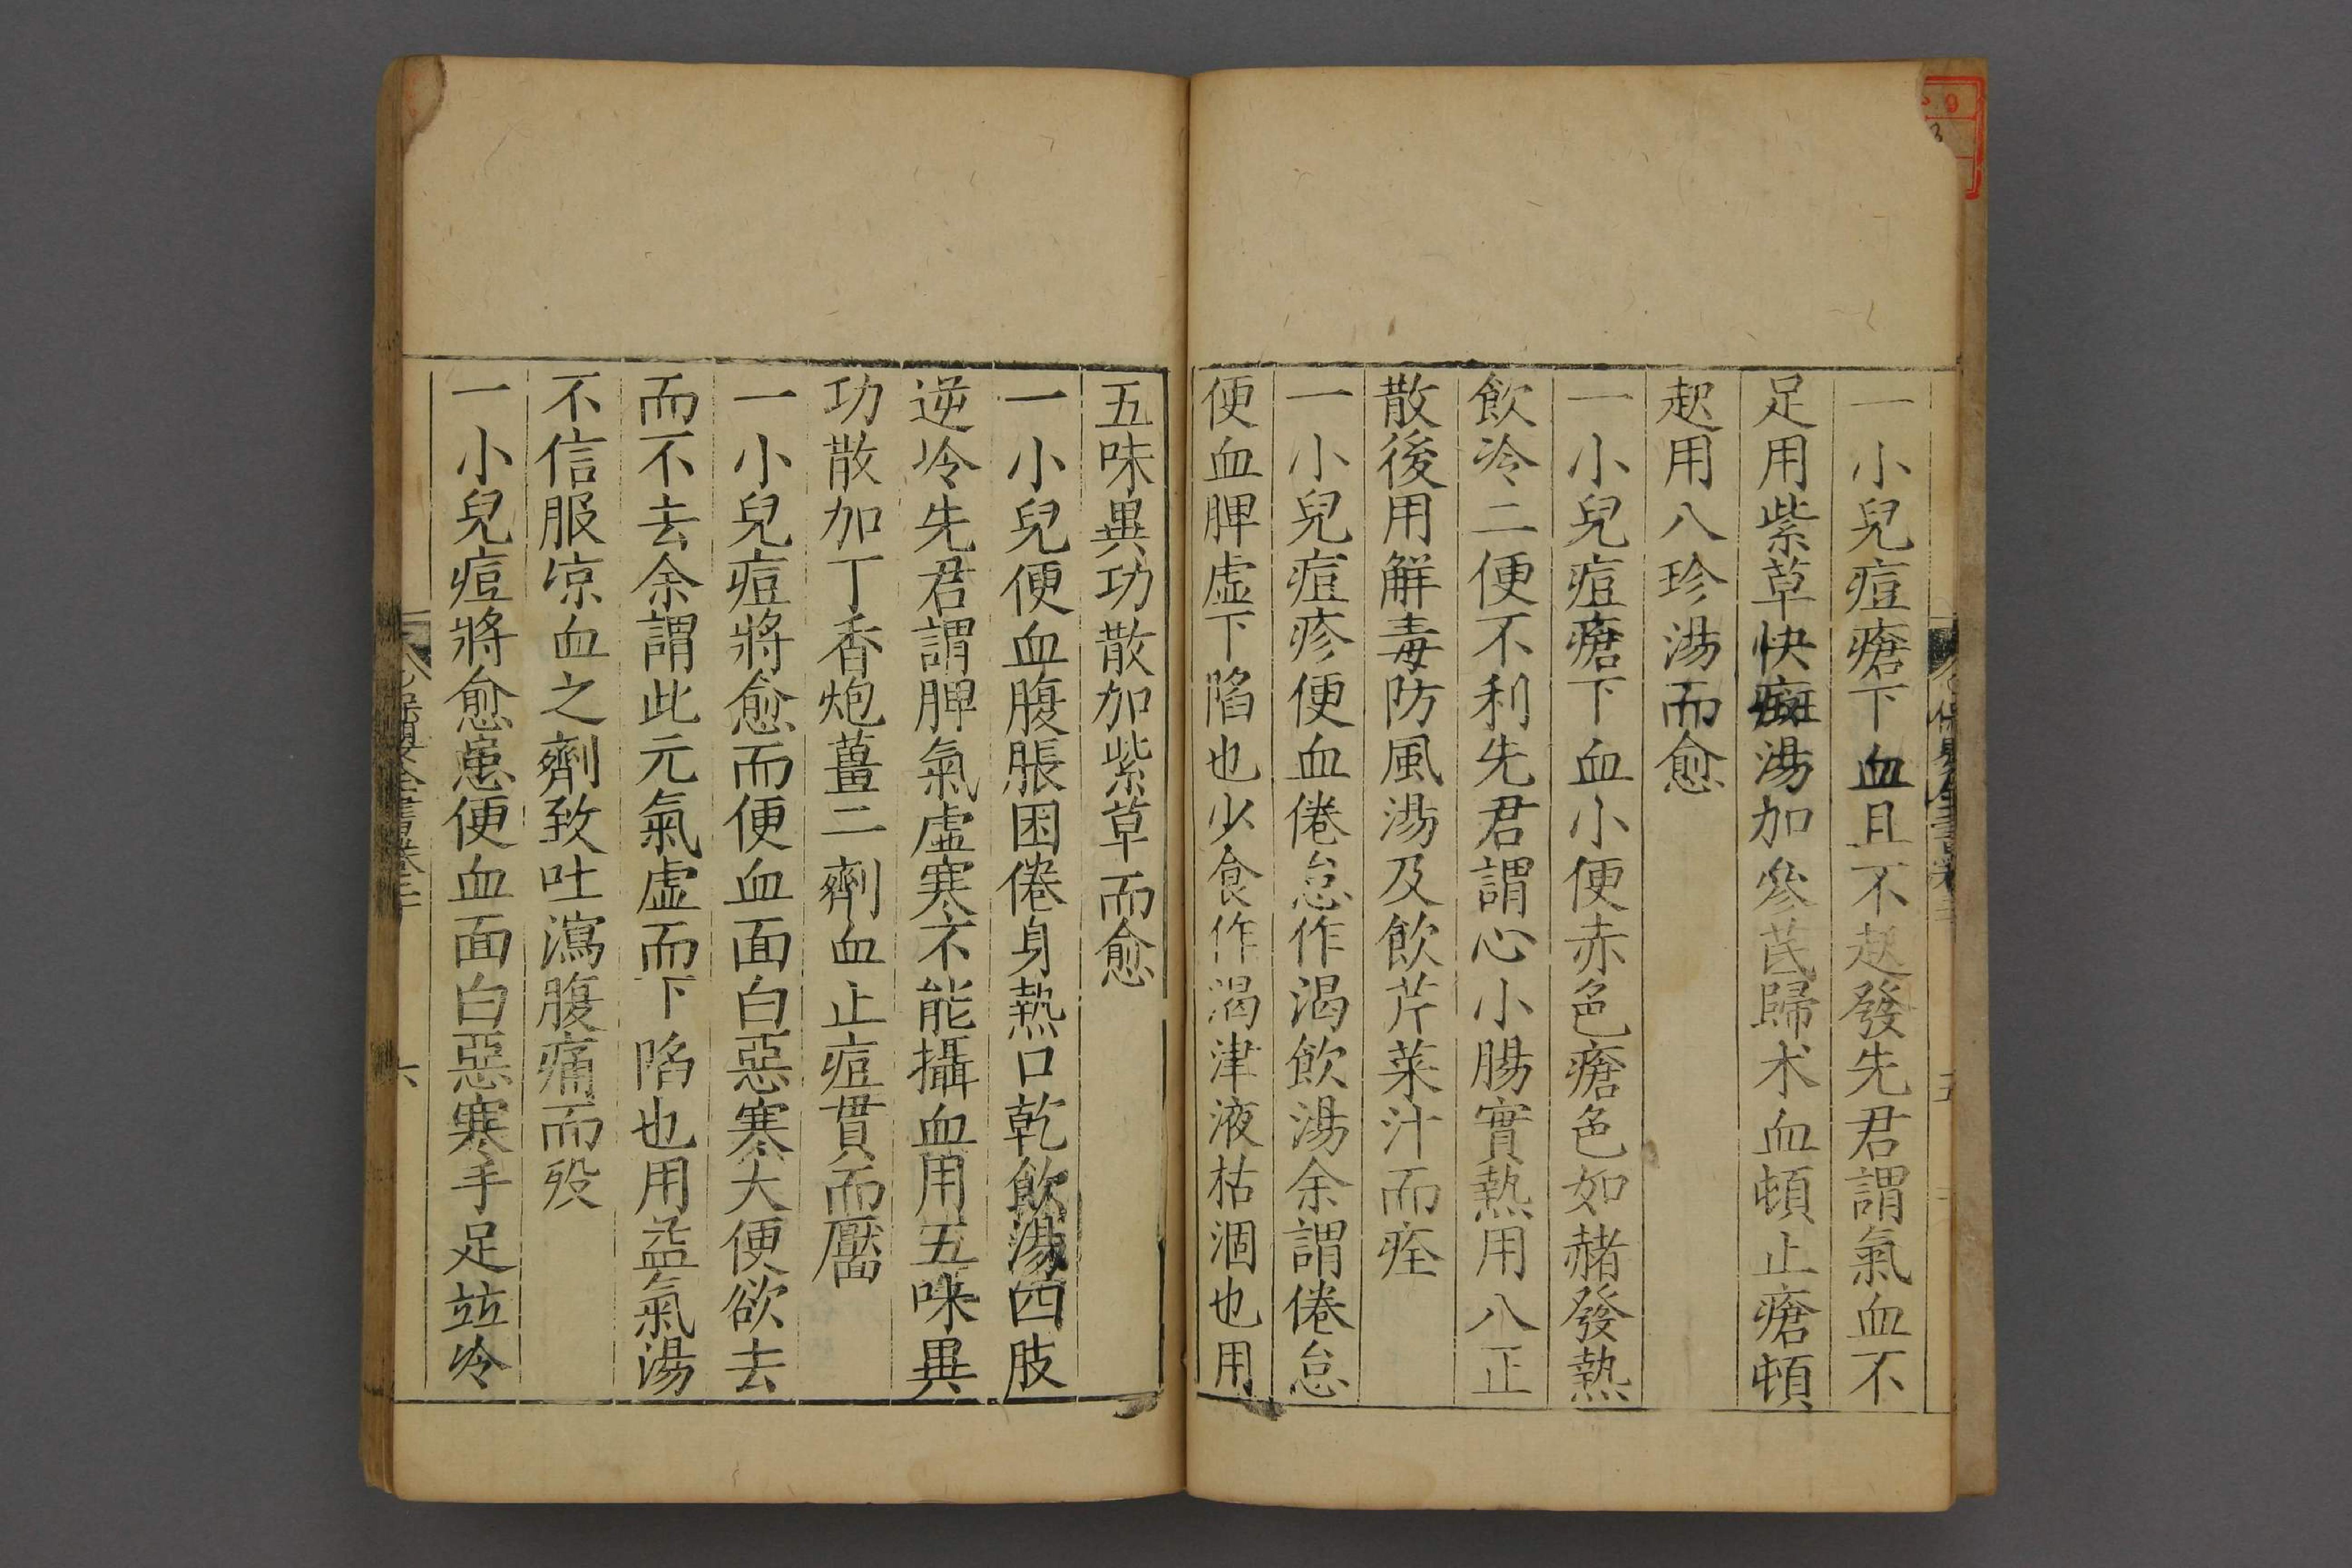 一小兒痘瘡下血且不起發先君謂氣血不
足用紫草快癍湯加參芪歸术血頓止瘡頓
起用八珍湯而愈
一小兒痘瘡下血小便赤色瘡色如赭發熱
飲冷二便不利先君謂心小腸實熱用八正
散後用解毒防風湯及飲芹菜汁而痊
一小兒痘疹便血倦怠作渴飲湯余謂倦怠
便血脾虛下陷也少食作渴津液枯涸也用
五味異功散加紫草而愈
一小兒便血腹脹困倦身熱口乾飲湯四肢
逆冷先君謂脾氣虛寒不能攝血用五味異
功散加丁香炮薑二劑血止痘貫而靨
一小兒痘將愈而便血面白惡寒大便欲去
而不去余謂此元氣虛而下陷也用益氣湯
不信服凉血之劑致吐瀉腹痛而歿
一小兒痘將愈患便血面白惡寒手足竝冷
六